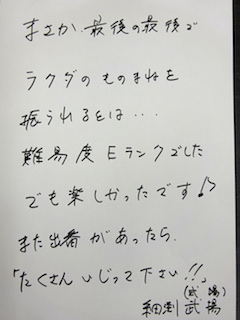 まさか、最後の最後で
ラクダのものまねを
振られるとは・・・
難易度Eランクでした
でも楽しかったです♪
また出番があったら、
「たくさんいじって下さい!!」
(武場)
細割 武揚